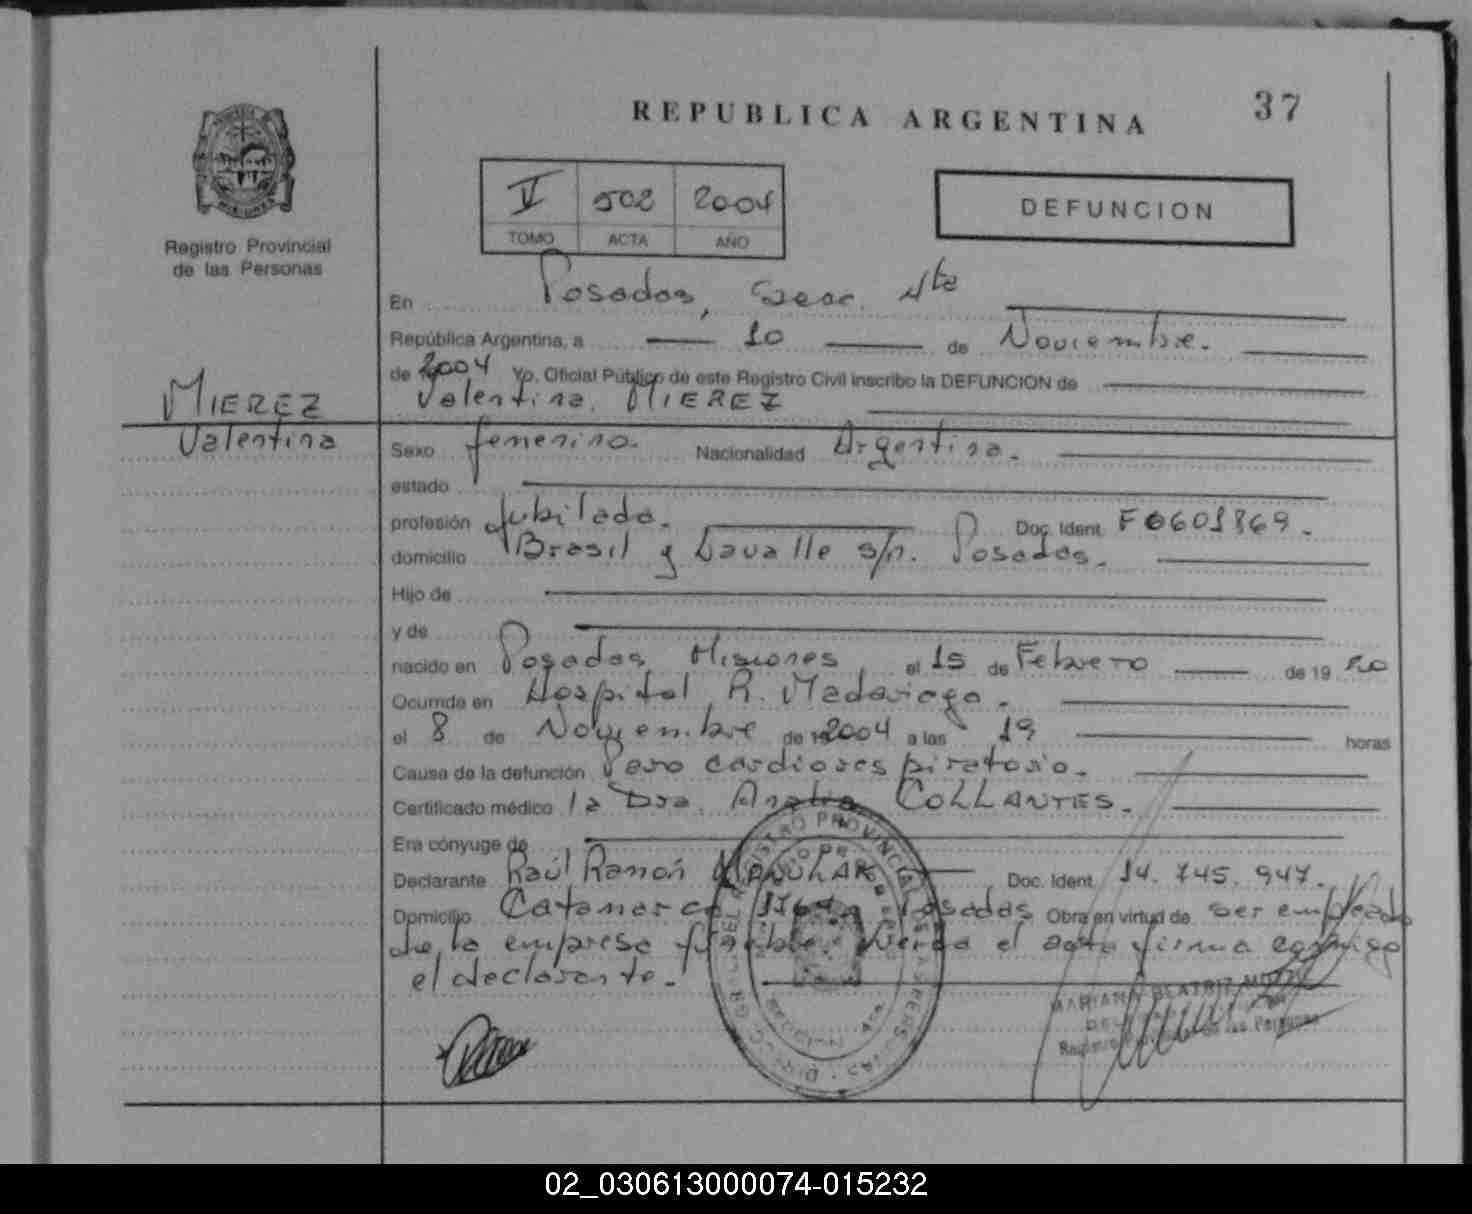 37
REPUBLICA ARGENTINA
V 502 2004
TOMO ACTA AÑO
DEFUNCION
Registro Provincial
de las Personas
En Posadas, Secc. 4ta
República Argentina, a 10 de Noviembre.
de 2004 Yo, Oficial Público de este Registro Civil inscribo la DEFUNCION de
Valentina MIEREZ
MIEREZ
Valentina
Sexo femenino. Nacionalidad Argentina.
estado
profesión Jubilada. Doc. Ident. F6601869.
domicilio Brasil y Lavalle s/n. Posadas.
Hijo de
y de
nacido en Posadas Misiones el 15 de Febrero de 19
Ocurrida en Hospital R. Madariaga.
el 8 de Noviembre de 2004 a las 19 horas
Causa de la defunción Paro cardiorespiratorio.
Certificado médico la Dra. Analia COLLANTES.
Era cónyuge de
Declarante Raúl Ramón Doc. Ident. 14.745.947.
Domicilio Catamarca Posadas Obra en virtud de ser empleado
de la empresa el acta firma conmigo
el declarante.
REGISTRO PROVINCIAL DE LAS PERSONAS
MARIANA BEATRIZ
Registro de las Personas
02_030613000074-015232